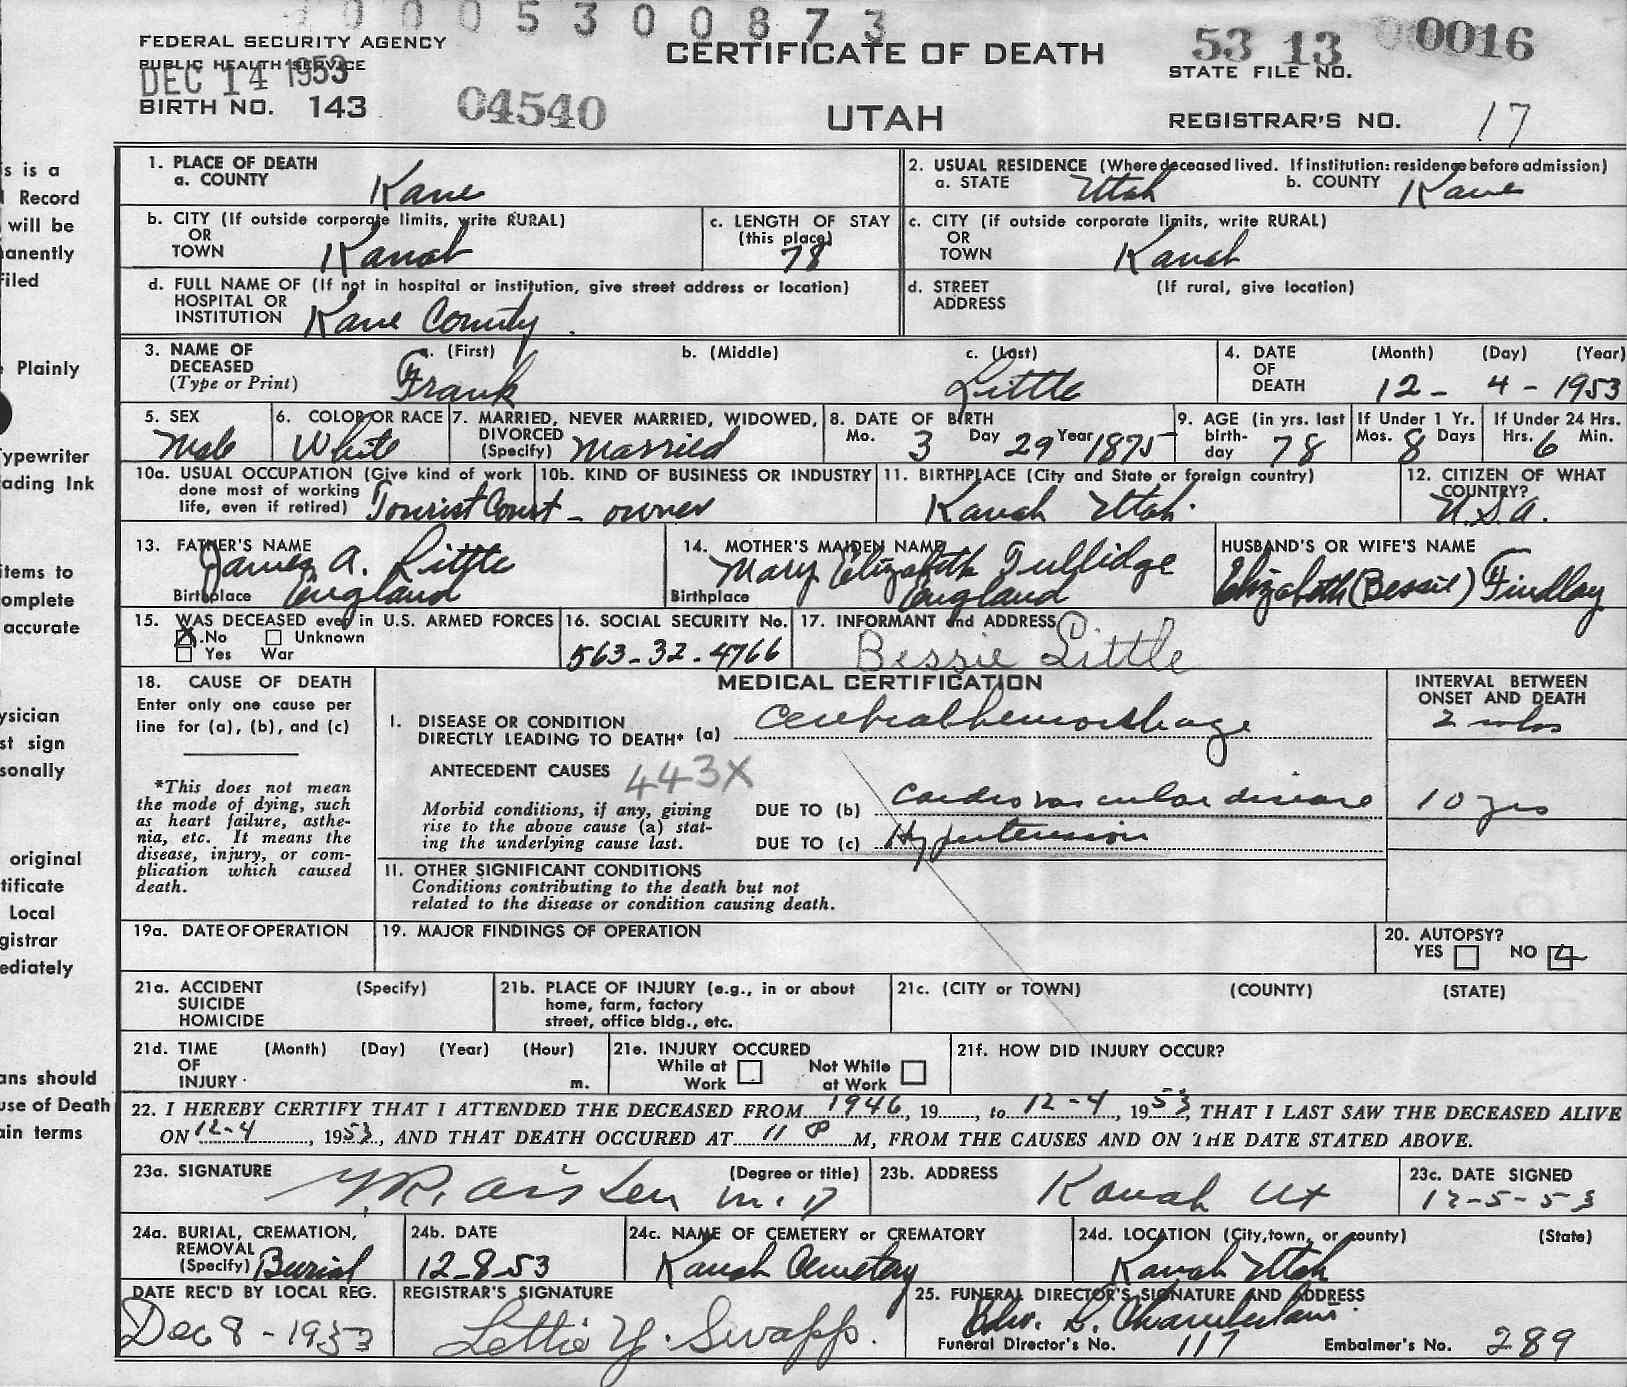 0 0 0 5 3 0 0 8 7 3
FEDERAL SECURITY AGENCY
PUBLIC HEALTH SERVICE
DEC 14 1953
BIRTH NO. 143
04540
CERTIFICATE OF DEATH
UTAH
53 13 0016
STATE FILE NO.
REGISTRAR'S NO. 17
s is a
Record
will be
anently
Filed
Plainly
ypewriter
ading Ink
items to
omplete
accurate
ysician
st sign
sonally
original
tificate
Local
gistrar
ediately
ans should
use of Death
ain terms
1. PLACE OF DEATH
a. COUNTY Kane
2. USUAL RESIDENCE (Where deceased lived. If institution: residence before admission)
a. STATE Utah b. COUNTY Kane
b. CITY (If outside corporate limits, write RURAL)
OR
TOWN Kanab
c. LENGTH OF STAY
(this place)
78
c. CITY (if outside corporate limits, write RURAL)
OR
TOWN Kanab
d. FULL NAME OF (If not in hospital or institution, give street address or location)
HOSPITAL OR
INSTITUTION Kane County.
d. STREET (If rural, give location)
ADDRESS
3. NAME OF DECEASED
(Type or Print)
a. (First) b. (Middle) c. (Last)
Frank Little
4. DATE OF DEATH (Month) (Day) (Year)
12 - 4 - 1953
5. SEX
Male
6. COLOR OR RACE
White
7. MARRIED, NEVER MARRIED, WIDOWED,
DIVORCED
(Specify) Married
8. DATE OF BIRTH
Mo. 3 Day 29 Year 1875
9. AGE (in yrs. last
birth-
day 78
If Under 1 Yr.
Mos. 8 Days
If Under 24 Hrs.
Hrs. 6 Min.
10a. USUAL OCCUPATION (Give kind of work
done most of working
life, even if retired) Tourist Court - owner
10b. KIND OF BUSINESS OR INDUSTRY
11. BIRTHPLACE (City and State or foreign country)
Kanab Utah.
12. CITIZEN OF WHAT
COUNTRY?
U.S.A.
13. FATHER'S NAME
James A. Little
Birthplace England
14. MOTHER'S MAIDEN NAME
Mary Elizabeth Tullidge
Birthplace England
HUSBAND'S OR WIFE'S NAME
Elizabeth (Bessie) Findlay
15. WAS DECEASED ever in U.S. ARMED FORCES
X No Unknown
Yes War
16. SOCIAL SECURITY No.
563-32-4766
17. INFORMANT and ADDRESS
Bessie Little
18. CAUSE OF DEATH
Enter only one cause per
line for (a), (b), and (c)
*This does not mean
the mode of dying, such
as heart failure, asthe-
nia, etc. It means the
disease, injury, or com-
plication which caused
death.
MEDICAL CERTIFICATION
I. DISEASE OR CONDITION
DIRECTLY LEADING TO DEATH* (a) Cerebral hemorrhage
ANTECEDENT CAUSES 443X
Morbid conditions, if any, giving
rise to the above cause (a) stat-
ing the underlying cause last.
DUE TO (b) Cardiovascular disease
DUE TO (c) Hypertension
INTERVAL BETWEEN
ONSET AND DEATH
2
10 yrs
II. OTHER SIGNIFICANT CONDITIONS
Conditions contributing to the death but not
related to the disease or condition causing death.
19a. DATE OF OPERATION
19. MAJOR FINDINGS OF OPERATION
20. AUTOPSY?
YES NO
21a. ACCIDENT (Specify)
SUICIDE
HOMICIDE
21b. PLACE OF INJURY (e.g., in or about
home, farm, factory
street, office bldg., etc.
21c. (CITY or TOWN) (COUNTY) (STATE)
21d. TIME (Month) (Day) (Year) (Hour)
OF
INJURY m.
21e. INJURY OCCURED
While at Work Not While at Work
21f. HOW DID INJURY OCCUR?
22. I HEREBY CERTIFY THAT I ATTENDED THE DECEASED FROM 1946, 19....., to 12-4, 1953, THAT I LAST SAW THE DECEASED ALIVE
ON 12-4, 1953, AND THAT DEATH OCCURED AT 11 P M, FROM THE CAUSES AND ON THE DATE STATED ABOVE.
23a. SIGNATURE (Degree or title)
Aiken M.D
23b. ADDRESS
Kanab Ut
23c. DATE SIGNED
12-5-53
24a. BURIAL, CREMATION,
REMOVAL
(Specify) Burial
24b. DATE
12-8-53
24c. NAME OF CEMETERY or CREMATORY
Kanab Cemetery
24d. LOCATION (City, town, or county) (State)
Kanab Utah
DATE REC'D BY LOCAL REG.
Dec 8 - 1953
REGISTRAR'S SIGNATURE
Lettie Y. Swapp.
25. FUNERAL DIRECTOR'S SIGNATURE AND ADDRESS
Chamberlain.
Funeral Director's No. 117 Embalmer's No. 289